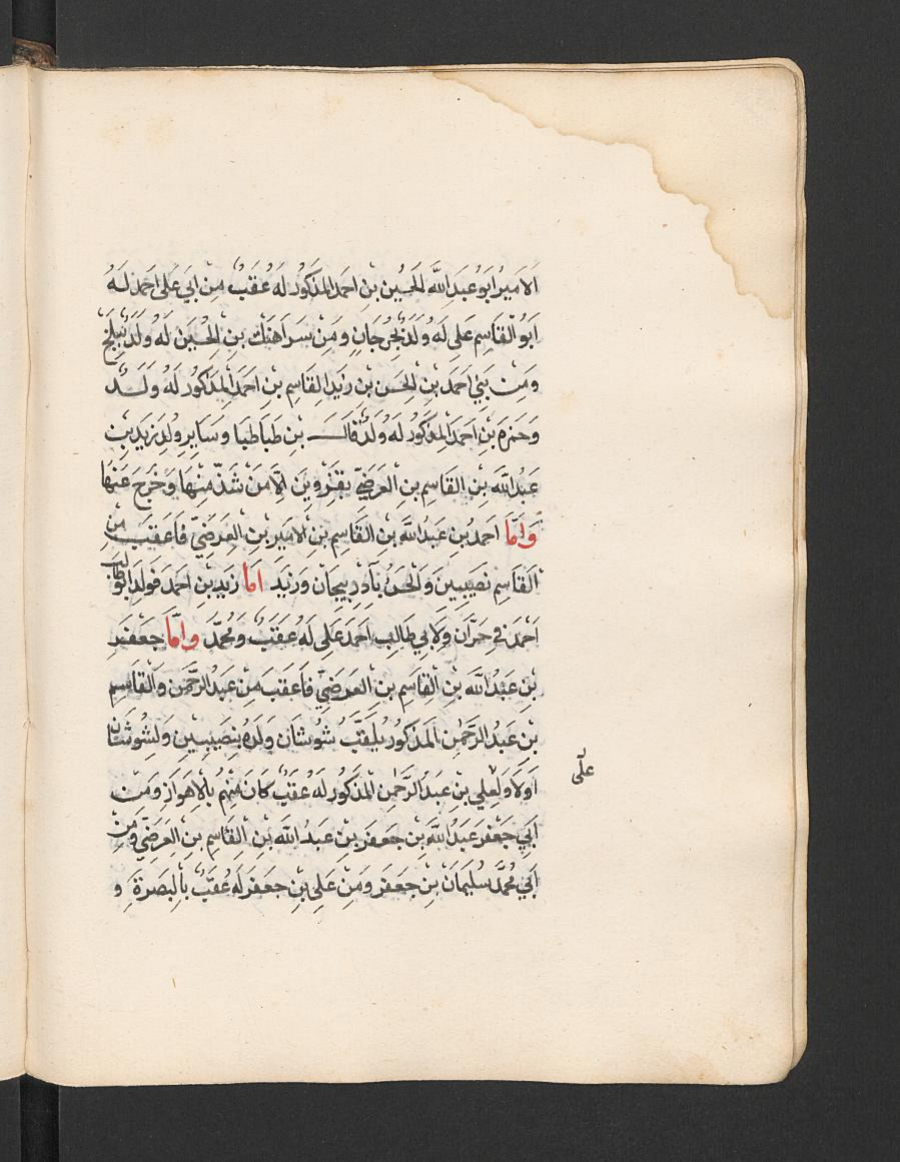 الاَمِيرُ اَبُو عُبَدَ اللّٰه الحُسَين بنِ احمَد المَذكُورْ لَهُ عُقَبٌ مِنْ اَبي عَلى احَمَد لَهُ
اَبوُ القَاسِم عَلي لَهُ وُلدٌ بجُرجَانِ وَمَنْ سَرَاهنَك بنِ الحُسَيَن لَهُ وُلدٌ ببَلخٍ
وَمِنْ بَنِي اَحمَد بنِ الحَسن بنِ زيَد القَاسِمِ بنِ احمَدَ المذكوُر لَهُ وَلَدٌ
وَحمزَه بنِ احَمدَ المذكوُر لهُ وُلدٌ قالَ بنِ طَباطَبا وَسَايرِ وُلدِ زيَد بنِ
عَبدُ اللّٰه بنِ القَاسِم بنِ العرَضيّ بقَزوينَ الاَّ مَنْ شذّ مِنْهَا وَخرَجَ عَنهَا
وَامّا احَمدُ بنِ عَبدُ اللّٰه بنِ القَاسِمِ بنِ الامَيرِ بنِ العرَضيّ فَاعَقبَ مِنِ
القَاسِمِ نصَيبينَ وَالحسَنُ بآذرِبيجَان وَزيَد امَا زيَد بنِ احمَد فولَد ابُو طالب
احَمدَ في حَرَّان وَلاَبي طَالبِ احمَدَ عَلي لَهُ عُقَبٌ وَمُحمّدَ وامّا جعَفَرِ
بنِ عَبدُ اللّٰه بنِ القَاسِم بنِ العرَضيّ فَاعقَبَ مِن عَبدُ الرّحمَن وَالقَاسِم
بنِ عَبدُ الرّحَمٰنِ المَذكوُر يُلقّبُ شوُشَان وَلدَه بنصَيبيَن وَلشوُشَان
اَوَلاَد وَلعِلي بنِ عَبدُ الرّحَمٰن المذكوُر لَهُ عُقَبٌ كَانَ مِنْهُم بالاهوَاز وَمِن
عَلى
اَبي جَعفَر عَبدُ اللّٰه بنِ جعفَر بنِ عَبدُ اللّٰه بنِ القَاسِمِ بنِ العرَضيّ وَمِنِ
اَبي مُحمَّد سُليَمانَ بنِ جعَفر وَمِنْ عَلى بنِ جعَفر لَهُ عُقبٌ بالبَصرَةِ وَ